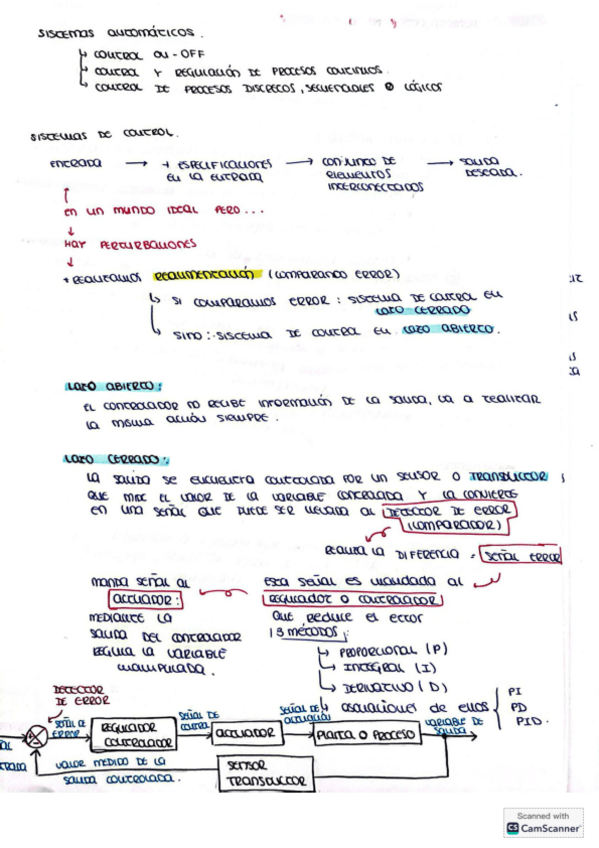 SISTEMAS AUTOMÁTICOS.
CONTROL ON-OFF
CONTROL Y REGULACIÓN DE PROCESOS CONTINUOS.
CONTROL DE PROCESOS DISCRETOS, SECUENCIALES O LÓGICOS
SISTEMAS DE CONTROL.
ENTRADA → + ESPECIFICACIONES EN LA ENTRADA → CONJUNTO DE ELEMENTOS INTERCONECTADOS → SALIDA DESEADA.
En un mundo ideal PERO...
HAY PERTURBACIONES
+ REALIZAMOS REALIMENTACIÓN (COMPARANDO ERROR)
SI COMPARAMOS ERROR: SISTEMA DE CONTROL EN LAZO CERRADO
SINO: SISTEMA DE CONTROL EN LAZO ABIERTO.
LAZO ABIERTO:
EL CONTROLADOR NO RECIBE INFORMACIÓN DE LA SALIDA, VA A REALIZAR
LA MISMA ACCIÓN SIEMPRE.
LAZO CERRADO:
LA SALIDA SE ENCUENTRA CONTROLADA POR UN SENSOR O TRANSDUCTOR,
QUE MIDE EL VALOR DE LA VARIABLE CONTROLADA Y LA CONVIERTE
EN UNA SEÑAL QUE PUEDE SER LLEVADA AL DETECTOR DE ERROR
(COMPARADOR)
REALIZA LA DIFERENCIA = SEÑAL ERROR
ESTA SEÑAL ES MANDADA AL
REGULADOR O CONTROLADOR
QUE REDUCE EL ERROR
3 MÉTODOS:
PROPORCIONAL (P)
INTEGRAL (I)
DERIVATIVO (D)
asociaciones de ellos { PI
PD
PID.
MANDA SEÑAL AL
ACTUADOR:
MEDIANTE LA
SALIDA DEL CONTROLADOR
REGULA LA VARIABLE
MANIPULADA.
DETECTOR
DE ERROR
SEÑAL DE
ERROR
REGULADOR
CONTROLADOR
SEÑAL DE
CONTROL
ACTUADOR
SEÑAL DE
ACTUACIÓN
PLANTA O PROCESO
VARIABLE DE
SALIDA
VALOR MEDIDO DE LA
SALIDA CONTROLADA.
SENSOR
TRANSDUCTOR
Scanned with
CS CamScanner